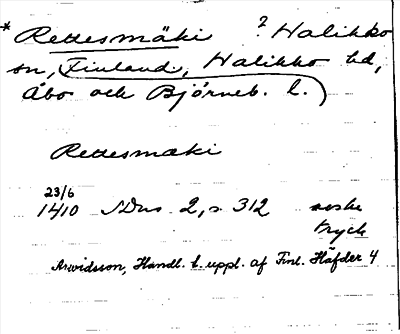 * Rettesmäki ? Halikko
sn, Finland, Halikko hd,
Åbo och Björneb. l.)
Rettesmaki
23/6
1410 SDns 2, s 312 avskr
tryck
Arwidsson, Handl. t. uppl. af Finl. Häfder 4